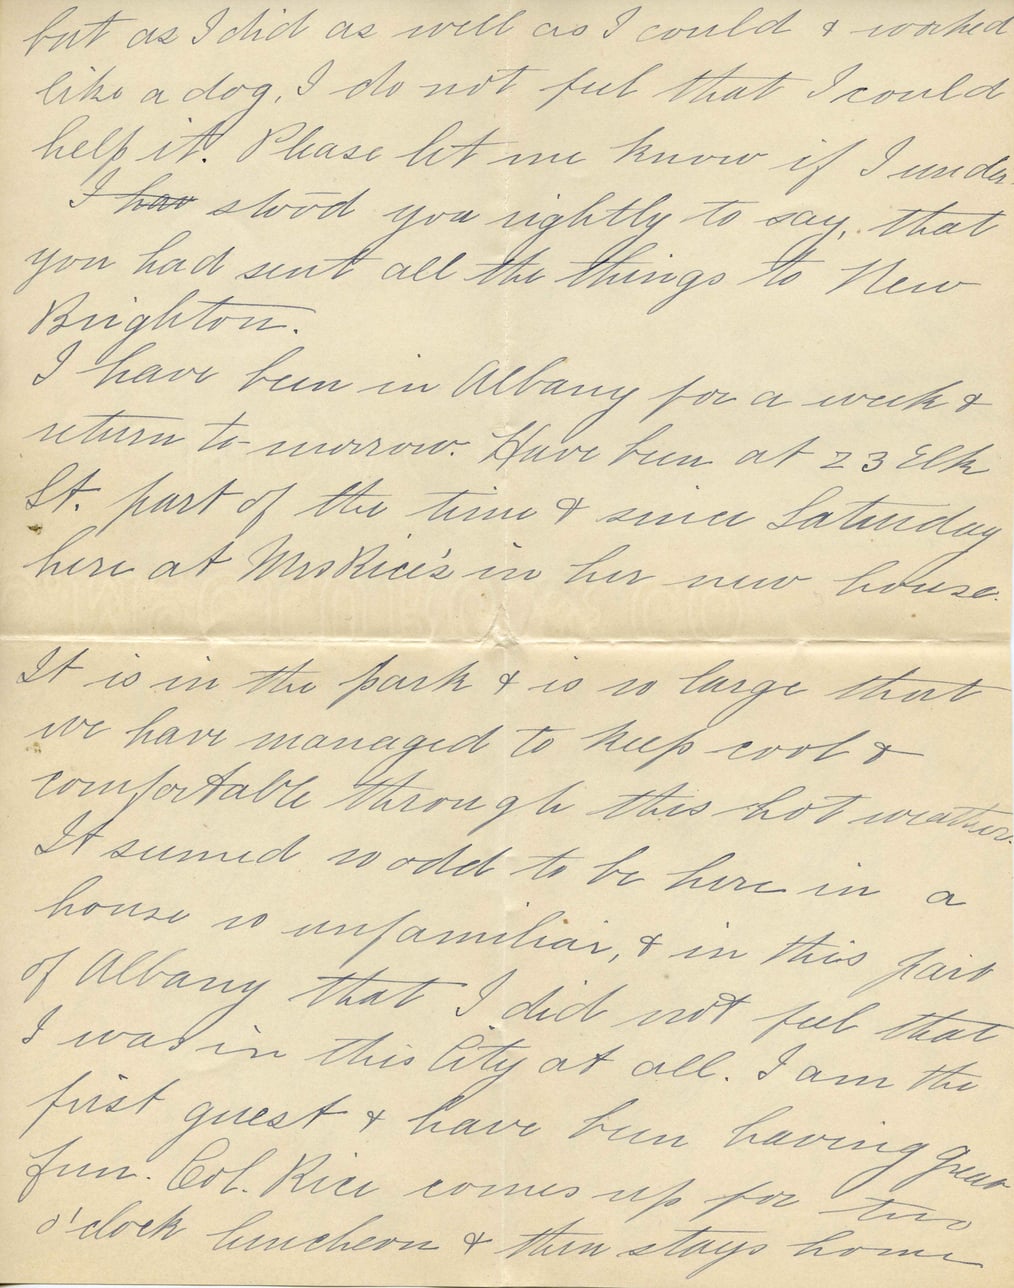 but as I did as well as I could & worked
like a dog, I do not feel that I could
help it. Please let me know if I under-
I hav stood you rightly to say, that
you had sent all the things to New
Brighton.
I have been in Albany for a week &
return to-morrow. Have been at 23 Elk
St. part of the time & since Saturday
here at Mrs Rice's in her new house.
It is in the park & is so large that
we have managed to keep cool &
comfortable through this hot weather.
It seemed so odd to be here in a
house so unfamiliar, & in this part
of Albany that I did not feel that
I was in this City at all. I am the
first guest & have been having great
fun. Col. Rice comes up for two
o'clock luncheon & then stays home